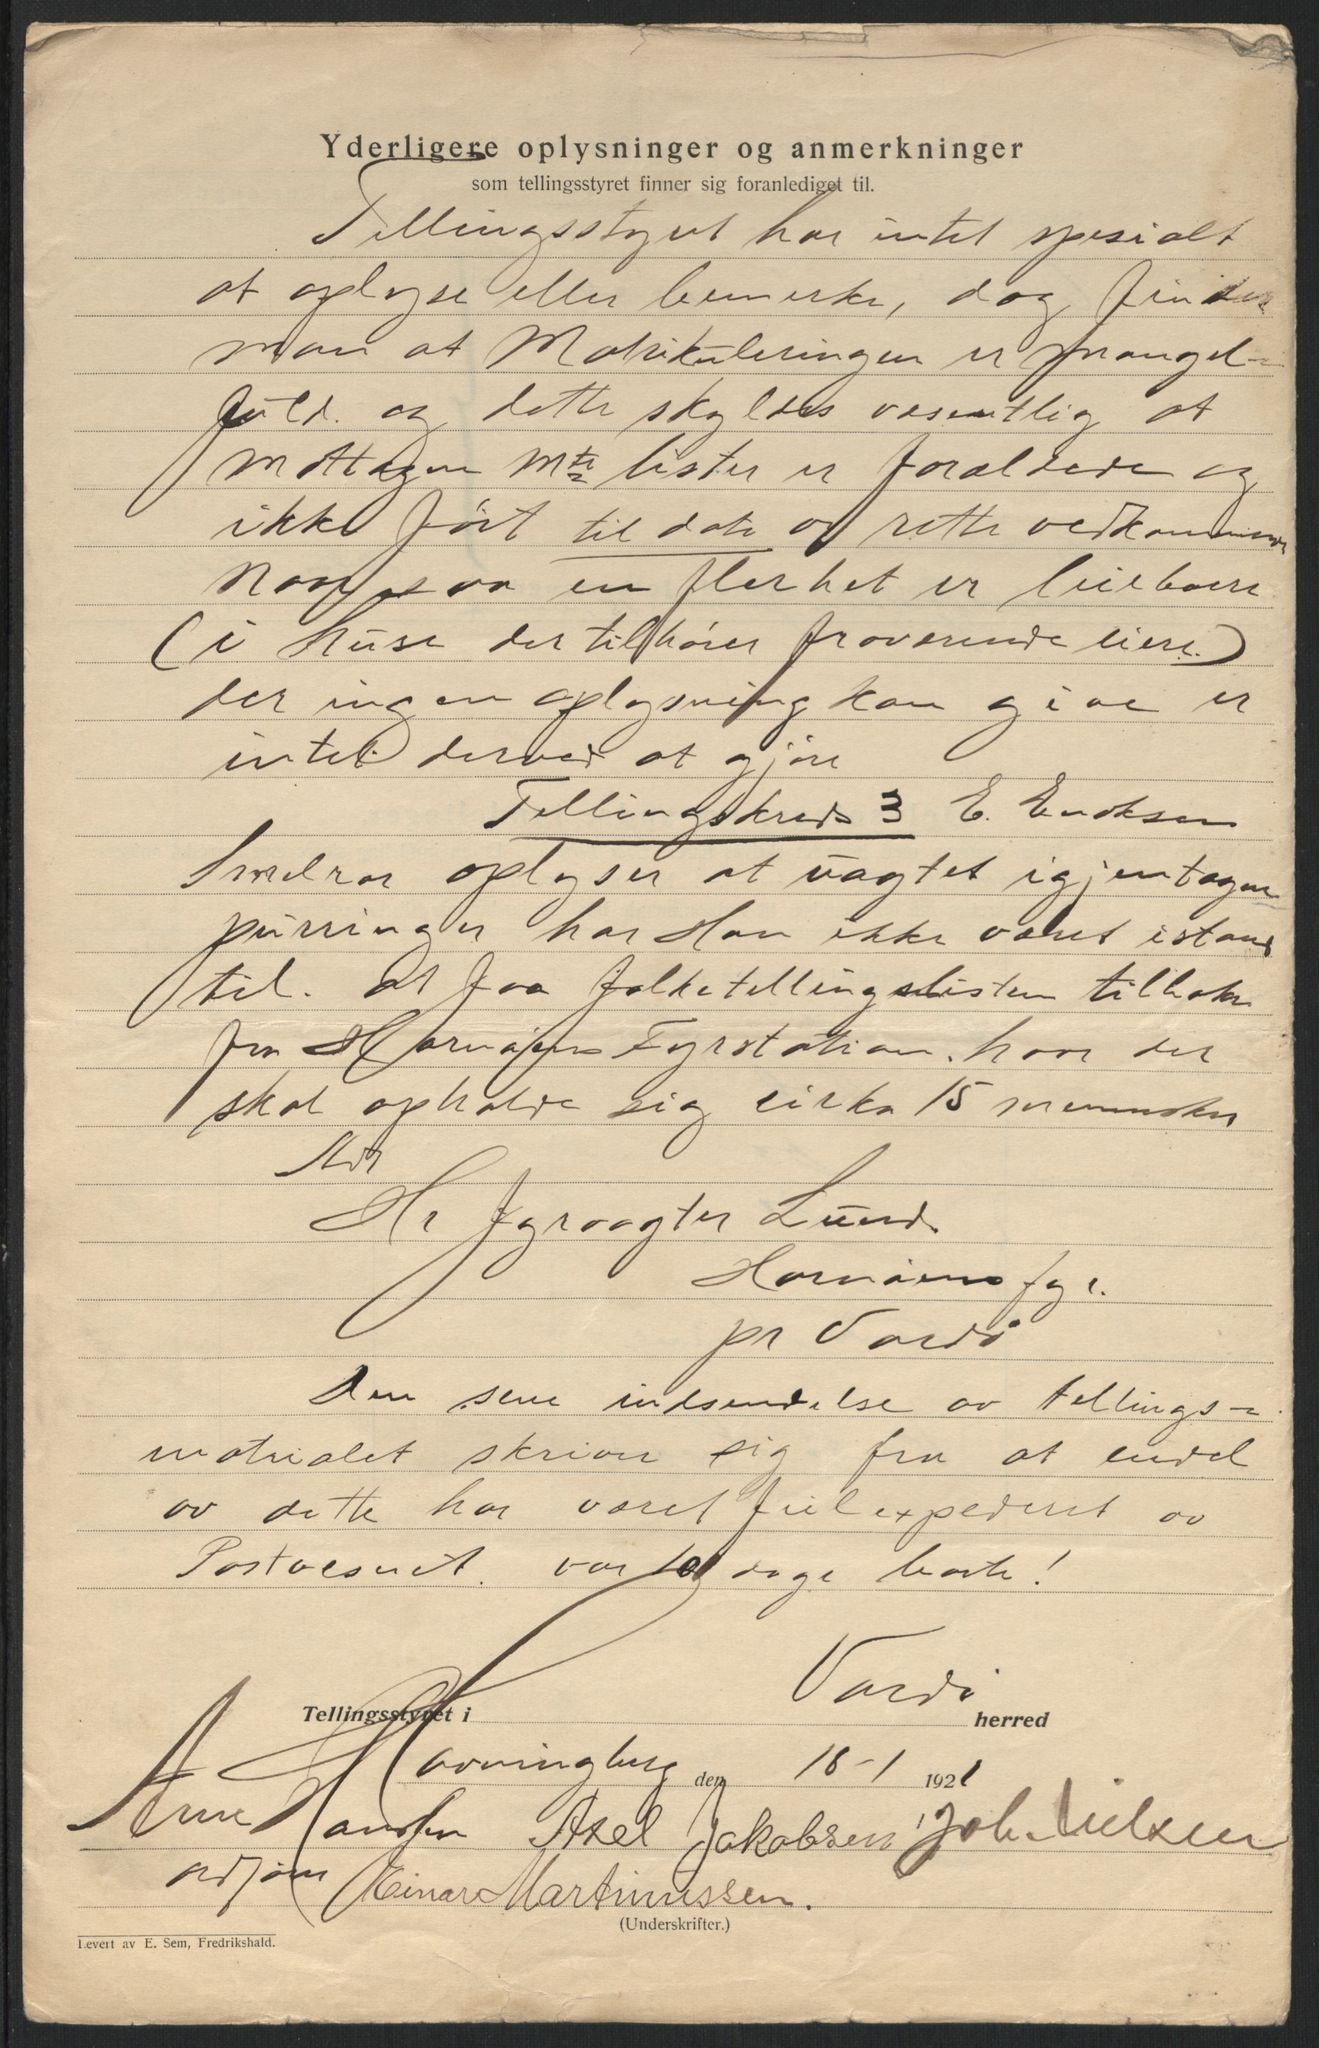 Yderligere oplysninger og anmerkninger
som tellingsstyret finner sig foranlediget til.
Tellingsstyret har intet spesialt
at oplyse eller bemerke, dog finder
man at Matrikuleringen er mangel-
fuld. og dette skyldes vesentlig at
mottagne Mtr lister er foraldede og
ikke ført til dato av rette vedkommende
Naar saa en flerhet er leieboere
(i huse der tilhører fraværende eiere.)
der ingen oplysning kan give er
intet derved at gjøre
Tellingskreds 3 E. Eriksen
Smelror oplyser at uagtet igjentagne
purringer har Han ikke været istand
til. at faa folketellingslisten tilbake
fra Hornøens Fyrstation. hvor der
skal opholde sig cirka 15 mennesker
Adr
Hr fyrvogter Lund.
Hornøens fyr.
pr Vardø
Den sene indsendelse av tellings-
matrialet skriver sig fra at endel
av dette har været feilexpederet av
Postvesenet. var 10 dage borte!
Vardø
Tellingsstyret i herred
Havningberg den 18-1 1921
Arne Hansen Axel Jakobsen Joh. Nielsen
ordfører Einar Martinussen.
(Underskrifter.)
Levert av E. Sem, Fredrikshald.